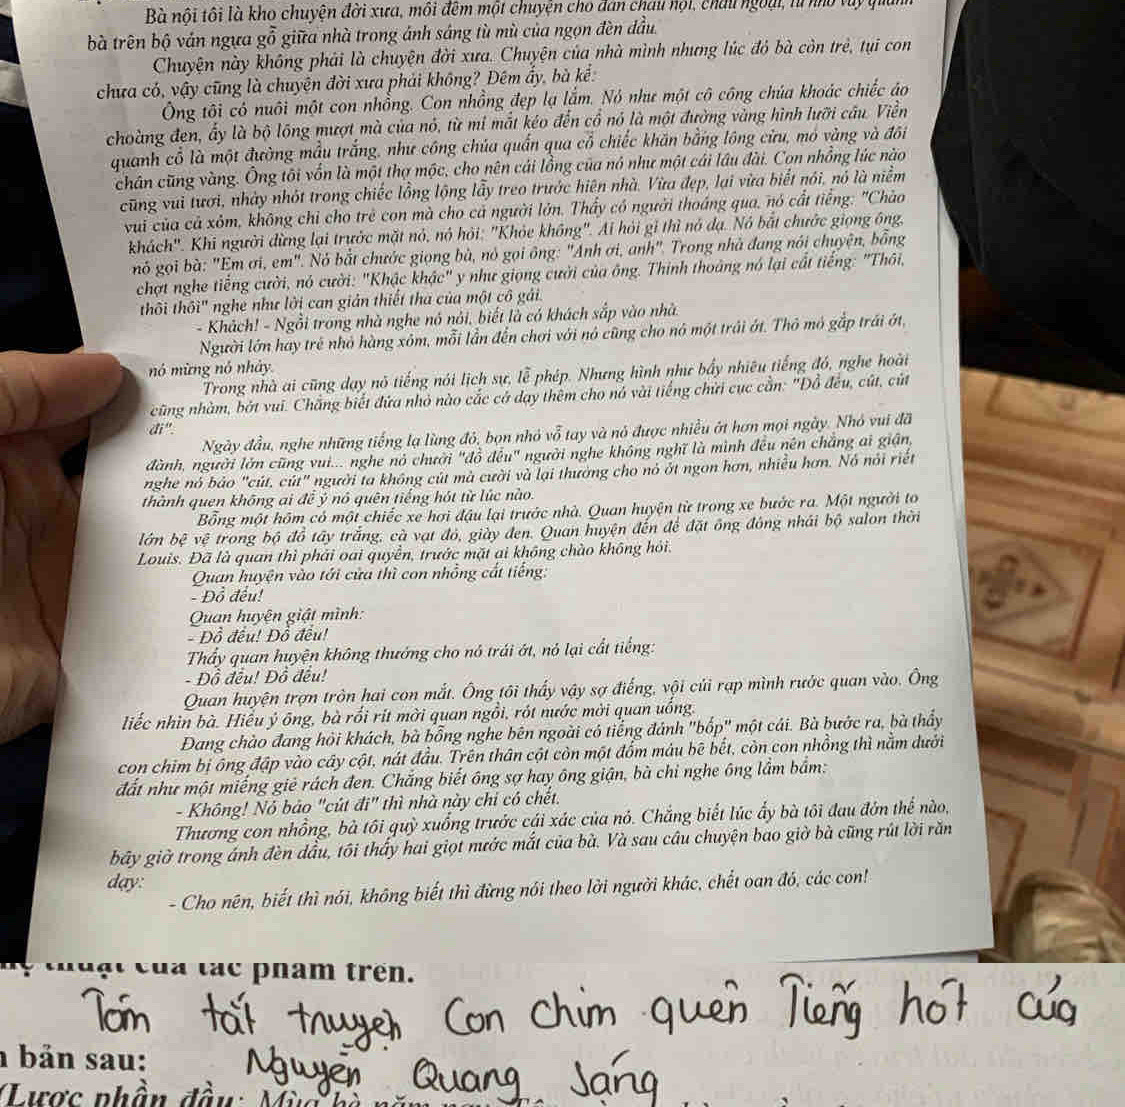 Bà nội tôi là kho chuyện đời xưa, mỗi đêm một chuyện cho đàn cháu nội, cháu ngoại,
bà trên bộ ván ngựa gỗ giữa nhà trong ánh sáng tù mù của ngọn đèn dầu.
Chuyện này không phải là chuyện đời xưa. Chuyện của nhà mình nhưng lúc đó bà còn trẻ, tụi con
chưa có, vậy cũng là chuyện đời xưa phải không? Đêm ấy, bà kể:
Ông tôi có nuôi một con nhồng. Con nhồng đẹp lạ lắm. Nó như một cô công chúa khoác chiếc áo
choàng đen, ấy là bộ lông mượt mà của nó, từ mí mắt kéo đến cổ nó là một đường vàng hình lưỡi câu. Viền
quanh cổ là một đường mầu trắng, như công chúa quấn qua cổ chiếc khăn bằng lông cừu, mỏ vàng và đôi
chân cũng vàng. Ông tôi vốn là một thợ mộc, cho nên cái lồng của nó như một cái lâu đài. Con nhồng lúc nào
cũng vui tươi, nhảy nhót trong chiếc lồng lộng lẫy treo trước hiên nhà. Vừa đẹp, lại vừa biết nói, nó là niềm
vui của cả xóm, không chỉ cho trẻ con mà cho cả người lớn. Thấy có người thoáng qua, nó cất tiếng: "Chào
khách". Khi người dừng lại trước mặt nó, nó hỏi: "Khỏe không". Ai hỏi gì thì nó dạ. Nó bắt chước giọng ông,
nó gọi bà: "Em ơi, em". Nó bắt chước giọng bà, nó gọi ông: "Anh ơi, anh". Trong nhà đang nói chuyện, bỗng
chợt nghe tiếng cười, nó cười: "Khặc khặc" y như giọng cười của ông. Thỉnh thoảng nó lại cất tiếng: "Thôi,
thôi thôi" nghe như lời can gián thiết tha của một cô gái.
- Khách! - Ngồi trong nhà nghe nó nói, biết là có khách sắp vào nhà.
Người lớn hay trẻ nhỏ hàng xóm, mỗi lần đến chơi với nó cũng cho nó một trái ớt. Thò mỏ gắp trái ớt,
nó mừng nó nhảy.
Trong nhà ai cũng dạy nó tiếng nói lịch sự, lễ phép. Nhưng hình như bấy nhiêu tiếng đó, nghe hoài
cũng nhàm, bớt vui. Chẳng biết đứa nhỏ nào cắc cớ dạy thêm cho nó vài tiếng chửi cục cằn: "Đồ đểu, cút, cút
đi".
Ngày đầu, nghe những tiếng lạ lùng đó, bọn nhỏ vỗ tay và nó được nhiều ớt hơn mọi ngày. Nhỏ vui đã
đành, người lớn cũng vui... nghe nó chưởi "đồ đểu" người nghe không nghĩ là mình đểu nên chẳng ai giận,
nghe nó bảo "cút, cút" người ta không cút mà cười và lại thưởng cho nó ớt ngon hơn, nhiều hơn. Nó nói riết
thành quen không ai để ý nó quên tiếng hót từ lúc nào.
Bỗng một hôm có một chiếc xe hơi đậu lại trước nhà. Quan huyện từ trong xe bước ra. Một người to
lớn bệ vệ trong bộ đồ tây trắng, cà vạt đỏ, giày đen. Quan huyện đến để đặt ông đóng nhái bộ salon thời
Louis. Đã là quan thì phải oai quyền, trước mặt ai không chào không hỏi.
Quan huyện vào tới cửa thì con nhồng cất tiếng:
- Đồ đểu!
Quan huyện giật mình:
- Đồ đểu! Đồ đểu!
Thấy quan huyện không thưởng cho nó trái ớt, nó lại cất tiếng:
- Đồ đểu! Đồ đểu!
Quan huyện trợn tròn hai con mắt. Ông tôi thấy vậy sợ điếng, vội cúi rạp mình rước quan vào. Ông
liếc nhìn bà. Hiểu ý ông, bà rối rít mời quan ngồi, rót nước mời quan uống.
Đang chào đang hỏi khách, bà bỗng nghe bên ngoài có tiếng đánh "bốp" một cái. Bà bước ra, bà thấy
con chim bị ông đập vào cây cột, nát đầu. Trên thân cột còn một đốm máu bê bết, còn con nhồng thì nằm dưới
đất như một miếng giẻ rách đen. Chẳng biết ông sợ hay ông giận, bà chỉ nghe ông lầm bầm:
- Không! Nó bảo "cút đi" thì nhà này chỉ có chết.
Thương con nhồng, bà tôi quỳ xuống trước cái xác của nó. Chẳng biết lúc ấy bà tôi đau đớn thế nào,
bây giờ trong ánh đèn dầu, tôi thấy hai giọt nước mắt của bà. Và sau câu chuyện bao giờ bà cũng rút lời răn
dạy:
- Cho nên, biết thì nói, không biết thì đừng nói theo lời người khác, chết oan đó, các con!
thuật của tác phẩm trên.
Tóm tắt truyện Con chim quên Tiếng hót của
bản sau: Nguyễn Quang Sáng
(Lược phần đầu: Mùa hè